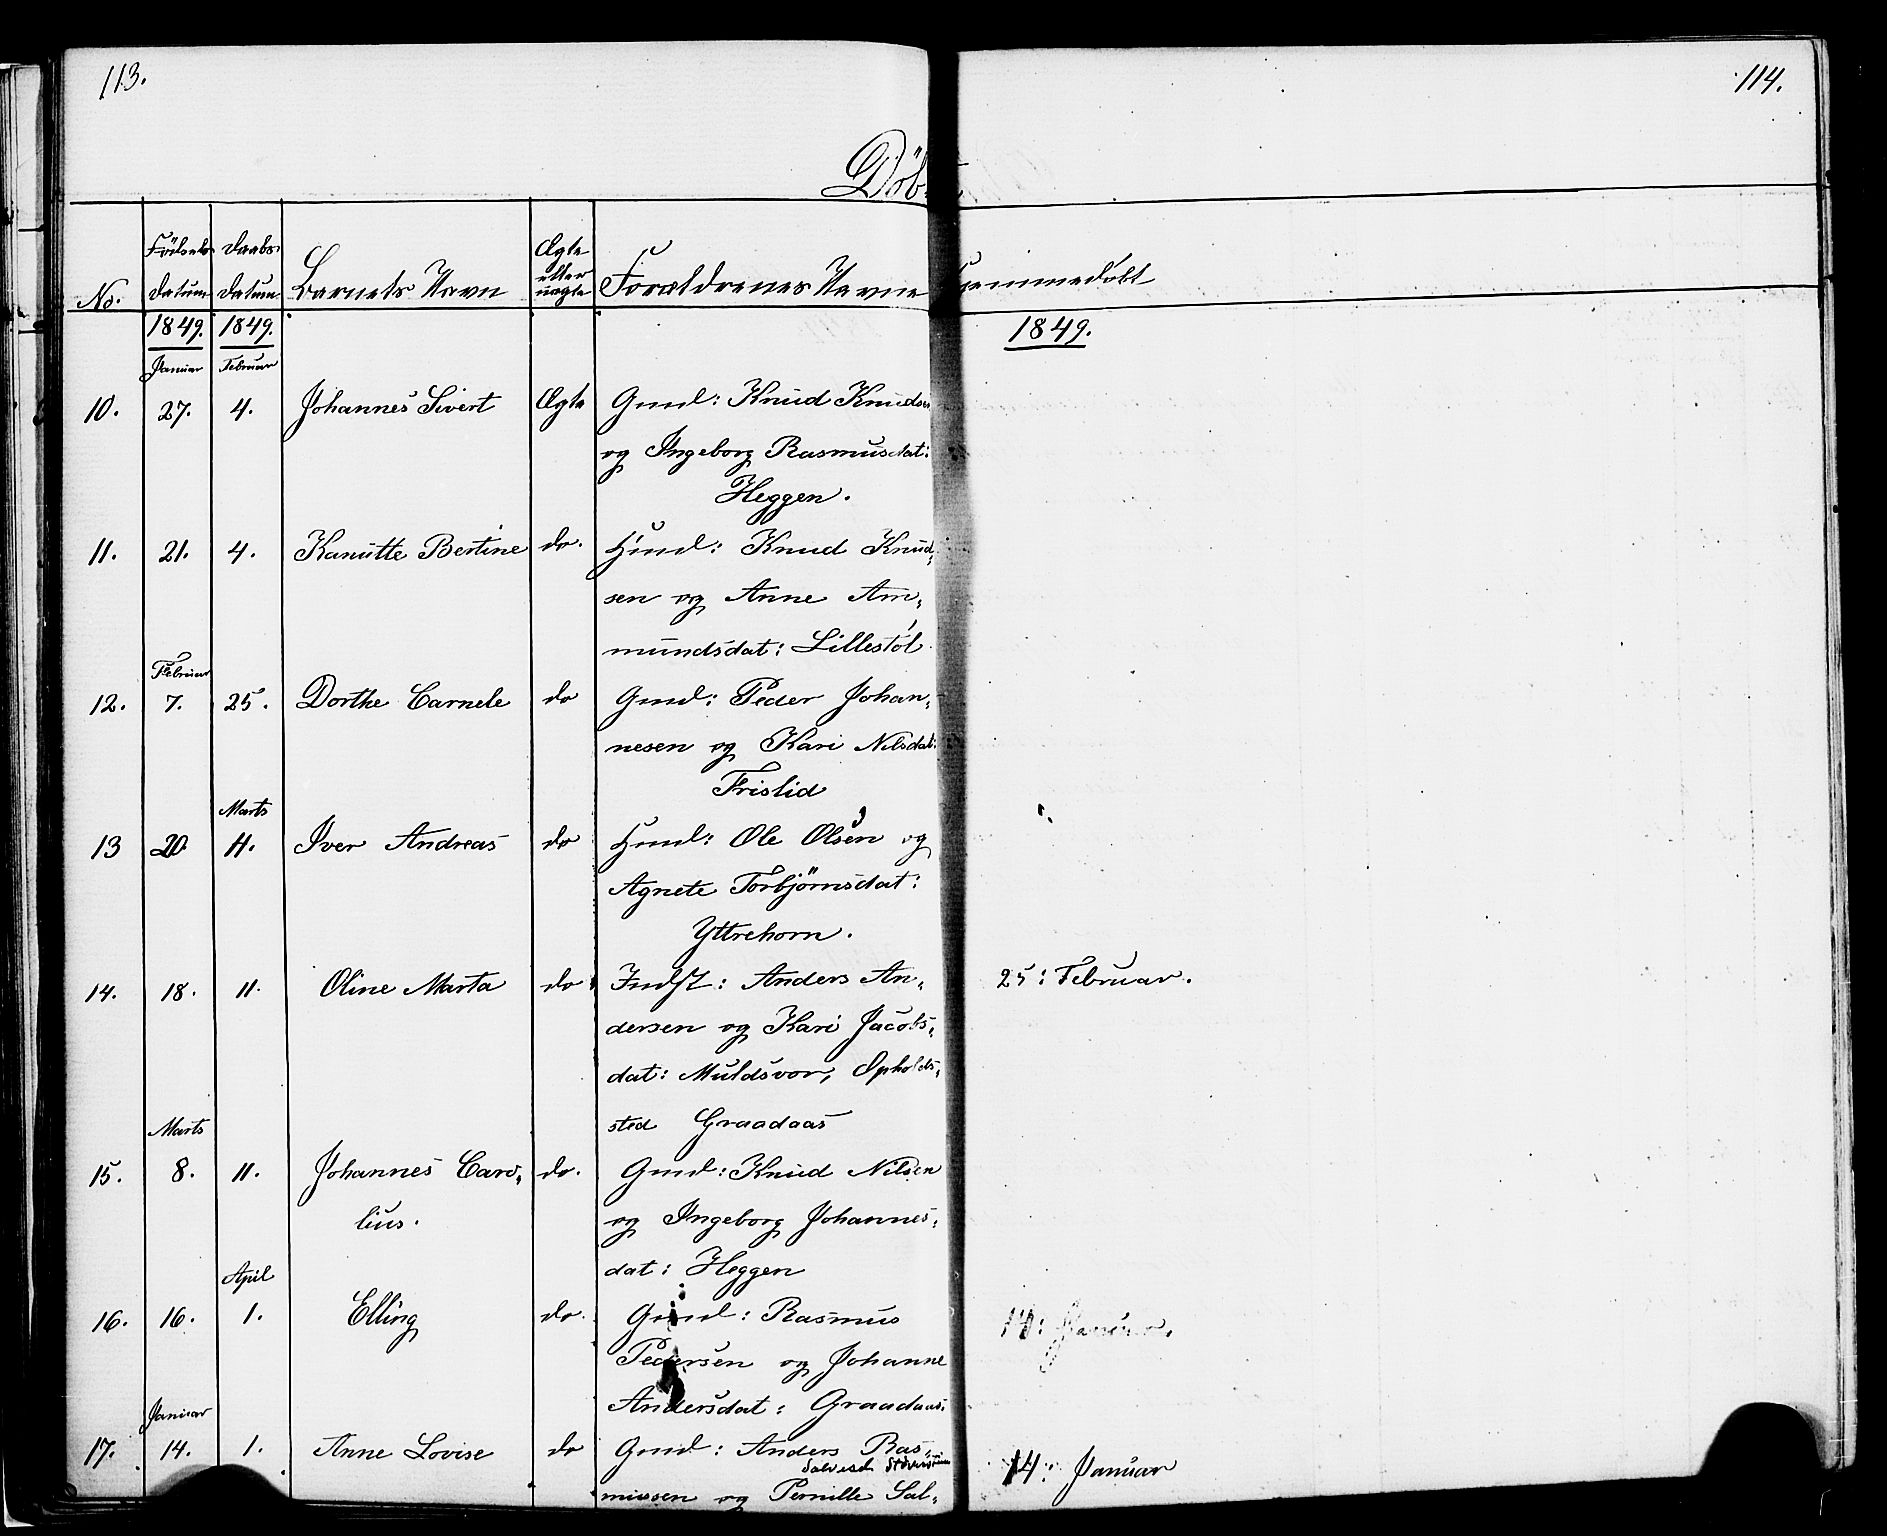 113.
114.
Döb
No.
Födsels
Datum
Daabs
Datum
Barnets Navn
Ægte
eller
uægte
Forældrenes Navne
Hjemmedöbt
1849.
1849.
1849.
Januar
Februar
10. 27. 4. Johannes Sivert Ægte Gmd: Knud Knudsen
og Ingeborg Rasmusdat:
Heggen.
11. 21. 4. Kanutte Bertine do. Hmd: Knud Knud,
sen og Anne Am,
mundsdat: Lillestöl
Februar
12. 7. 25. Dorthe Carnele do Gmd: Peder Johan,
nesen og Kari Nilsdat:
Frislid
Marts
13 20. 11. Iver Andreas do Hmd: Ole Olsen og
Agnete Torbjörnsdat:
Yttrehorn.
14. 18. 11. Oline Marta do Indst: Anders An, 25: Februar.
dersen og Kari Jacobs,
dat: Muldsvor, Opholds,
sted Graadaas
Marts
15. 8. 11. Johannes Caro, do. Gmd: Knud Nilsen
lius.
og Ingeborg Johannes,
dat: Heggen
April
16. 16. 1. Elling do. Gmd: Rasmus Januar.
Pedersen og Johanne
Andersdat: Graadaas.
Januar
17. 14. 1. Anne Lovise do Gmd: Anders Ras, 14: Januar
mussen og Pernille Sal,